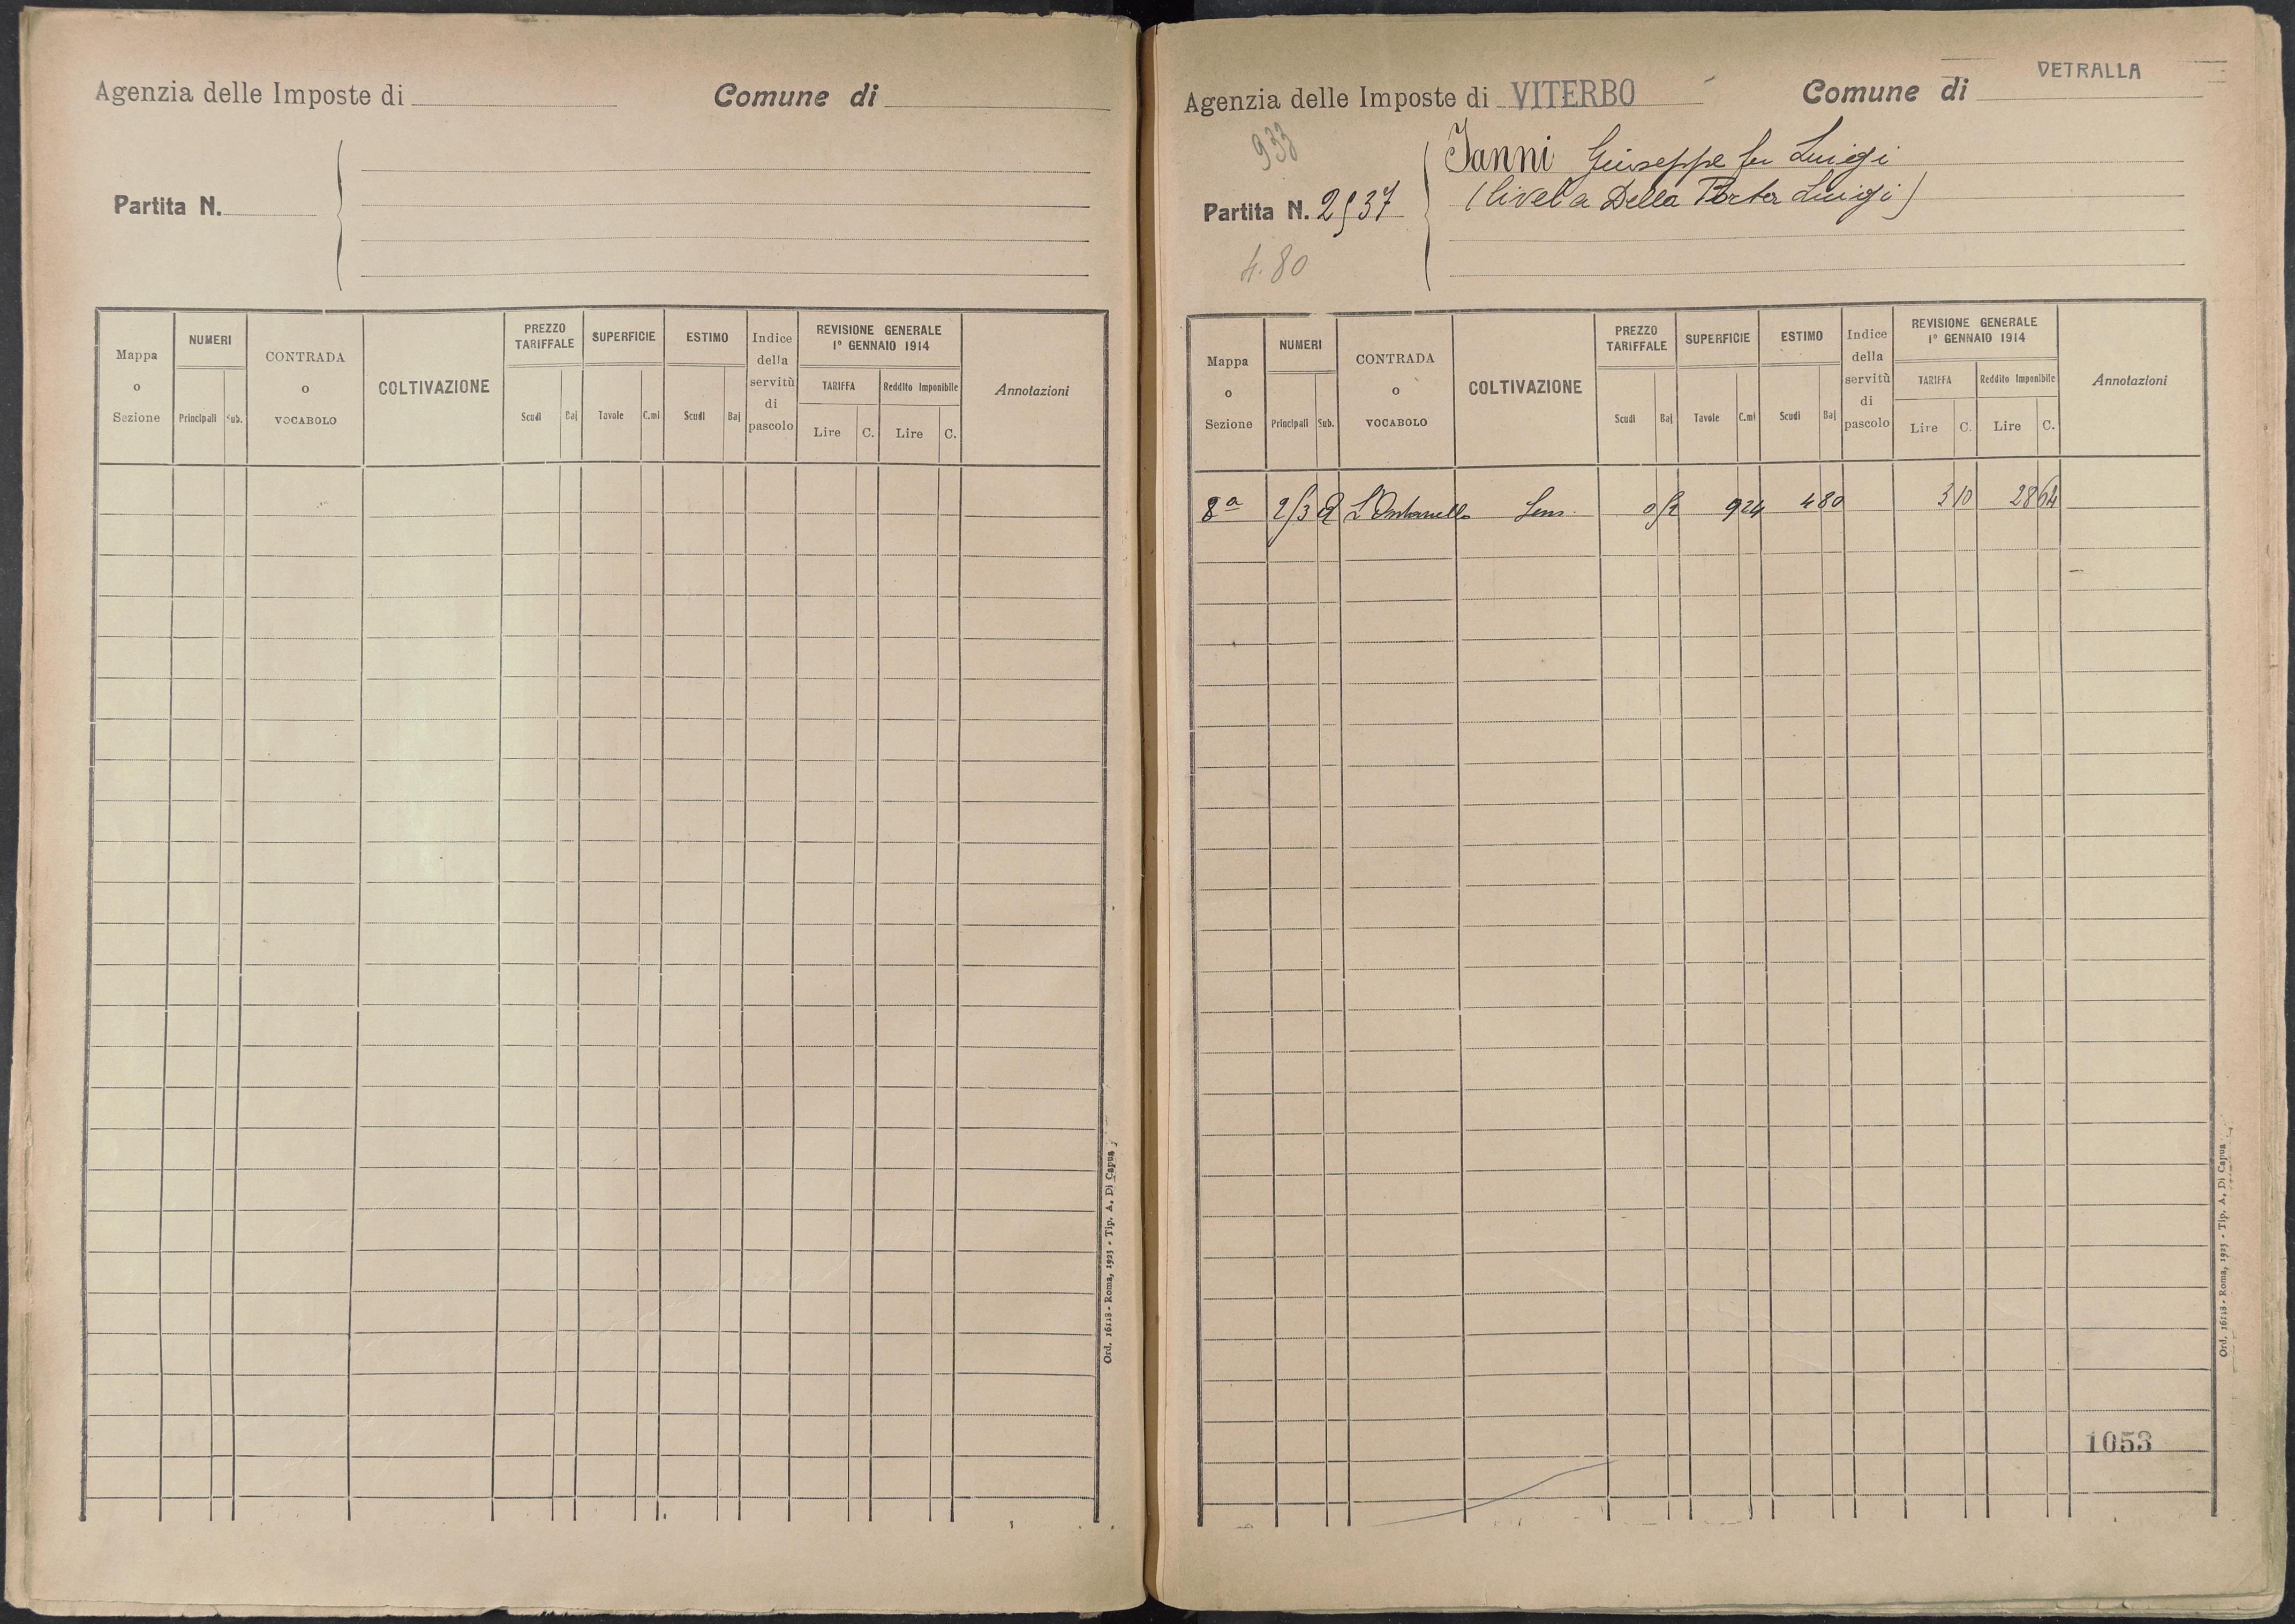 Agenzia delle Imposte di
Comune di
Partita N.
Mappa o Sezione
NUMERI
Principali
Sub.
CONTRADA o VOCABOLO
COLTIVAZIONE
PREZZO TARIFFALE
Scudi
Baj
SUPERFICIE
Tavole
C.mi
ESTIMO
Scudi
Baj
Indice della servitù di pascolo
REVISIONE GENERALE
1° GENNAIO 1914
TARIFFA
Reddito Imponibile
Lire
C.
Lire
C.
Annotazioni
Ord. 16118 - Roma, 1923 - Tip. A. Di Capua
Agenzia delle Imposte di VITERBO
Comune di VETRALLA
933
Ianni Giuseppe fu Luigi
Partita N. 2537
(livel a Della Porta Luigi)
4.80
Mappa o Sezione
NUMERI
Principali
Sub.
CONTRADA o VOCABOLO
COLTIVAZIONE
PREZZO TARIFFALE
Scudi
Baj
SUPERFICIE
Tavole
C.mi
ESTIMO
Scudi
Baj
Indice della servitù di pascolo
REVISIONE GENERALE
1° GENNAIO 1914
TARIFFA
Reddito Imponibile
Lire
C.
Lire
C.
Annotazioni
8ª L'Ontanello Sem. 0 52 9 24 4 80 3 10 28 64
1053
Ord. 16118 - Roma, 1923 - Tip. A. Di Capua